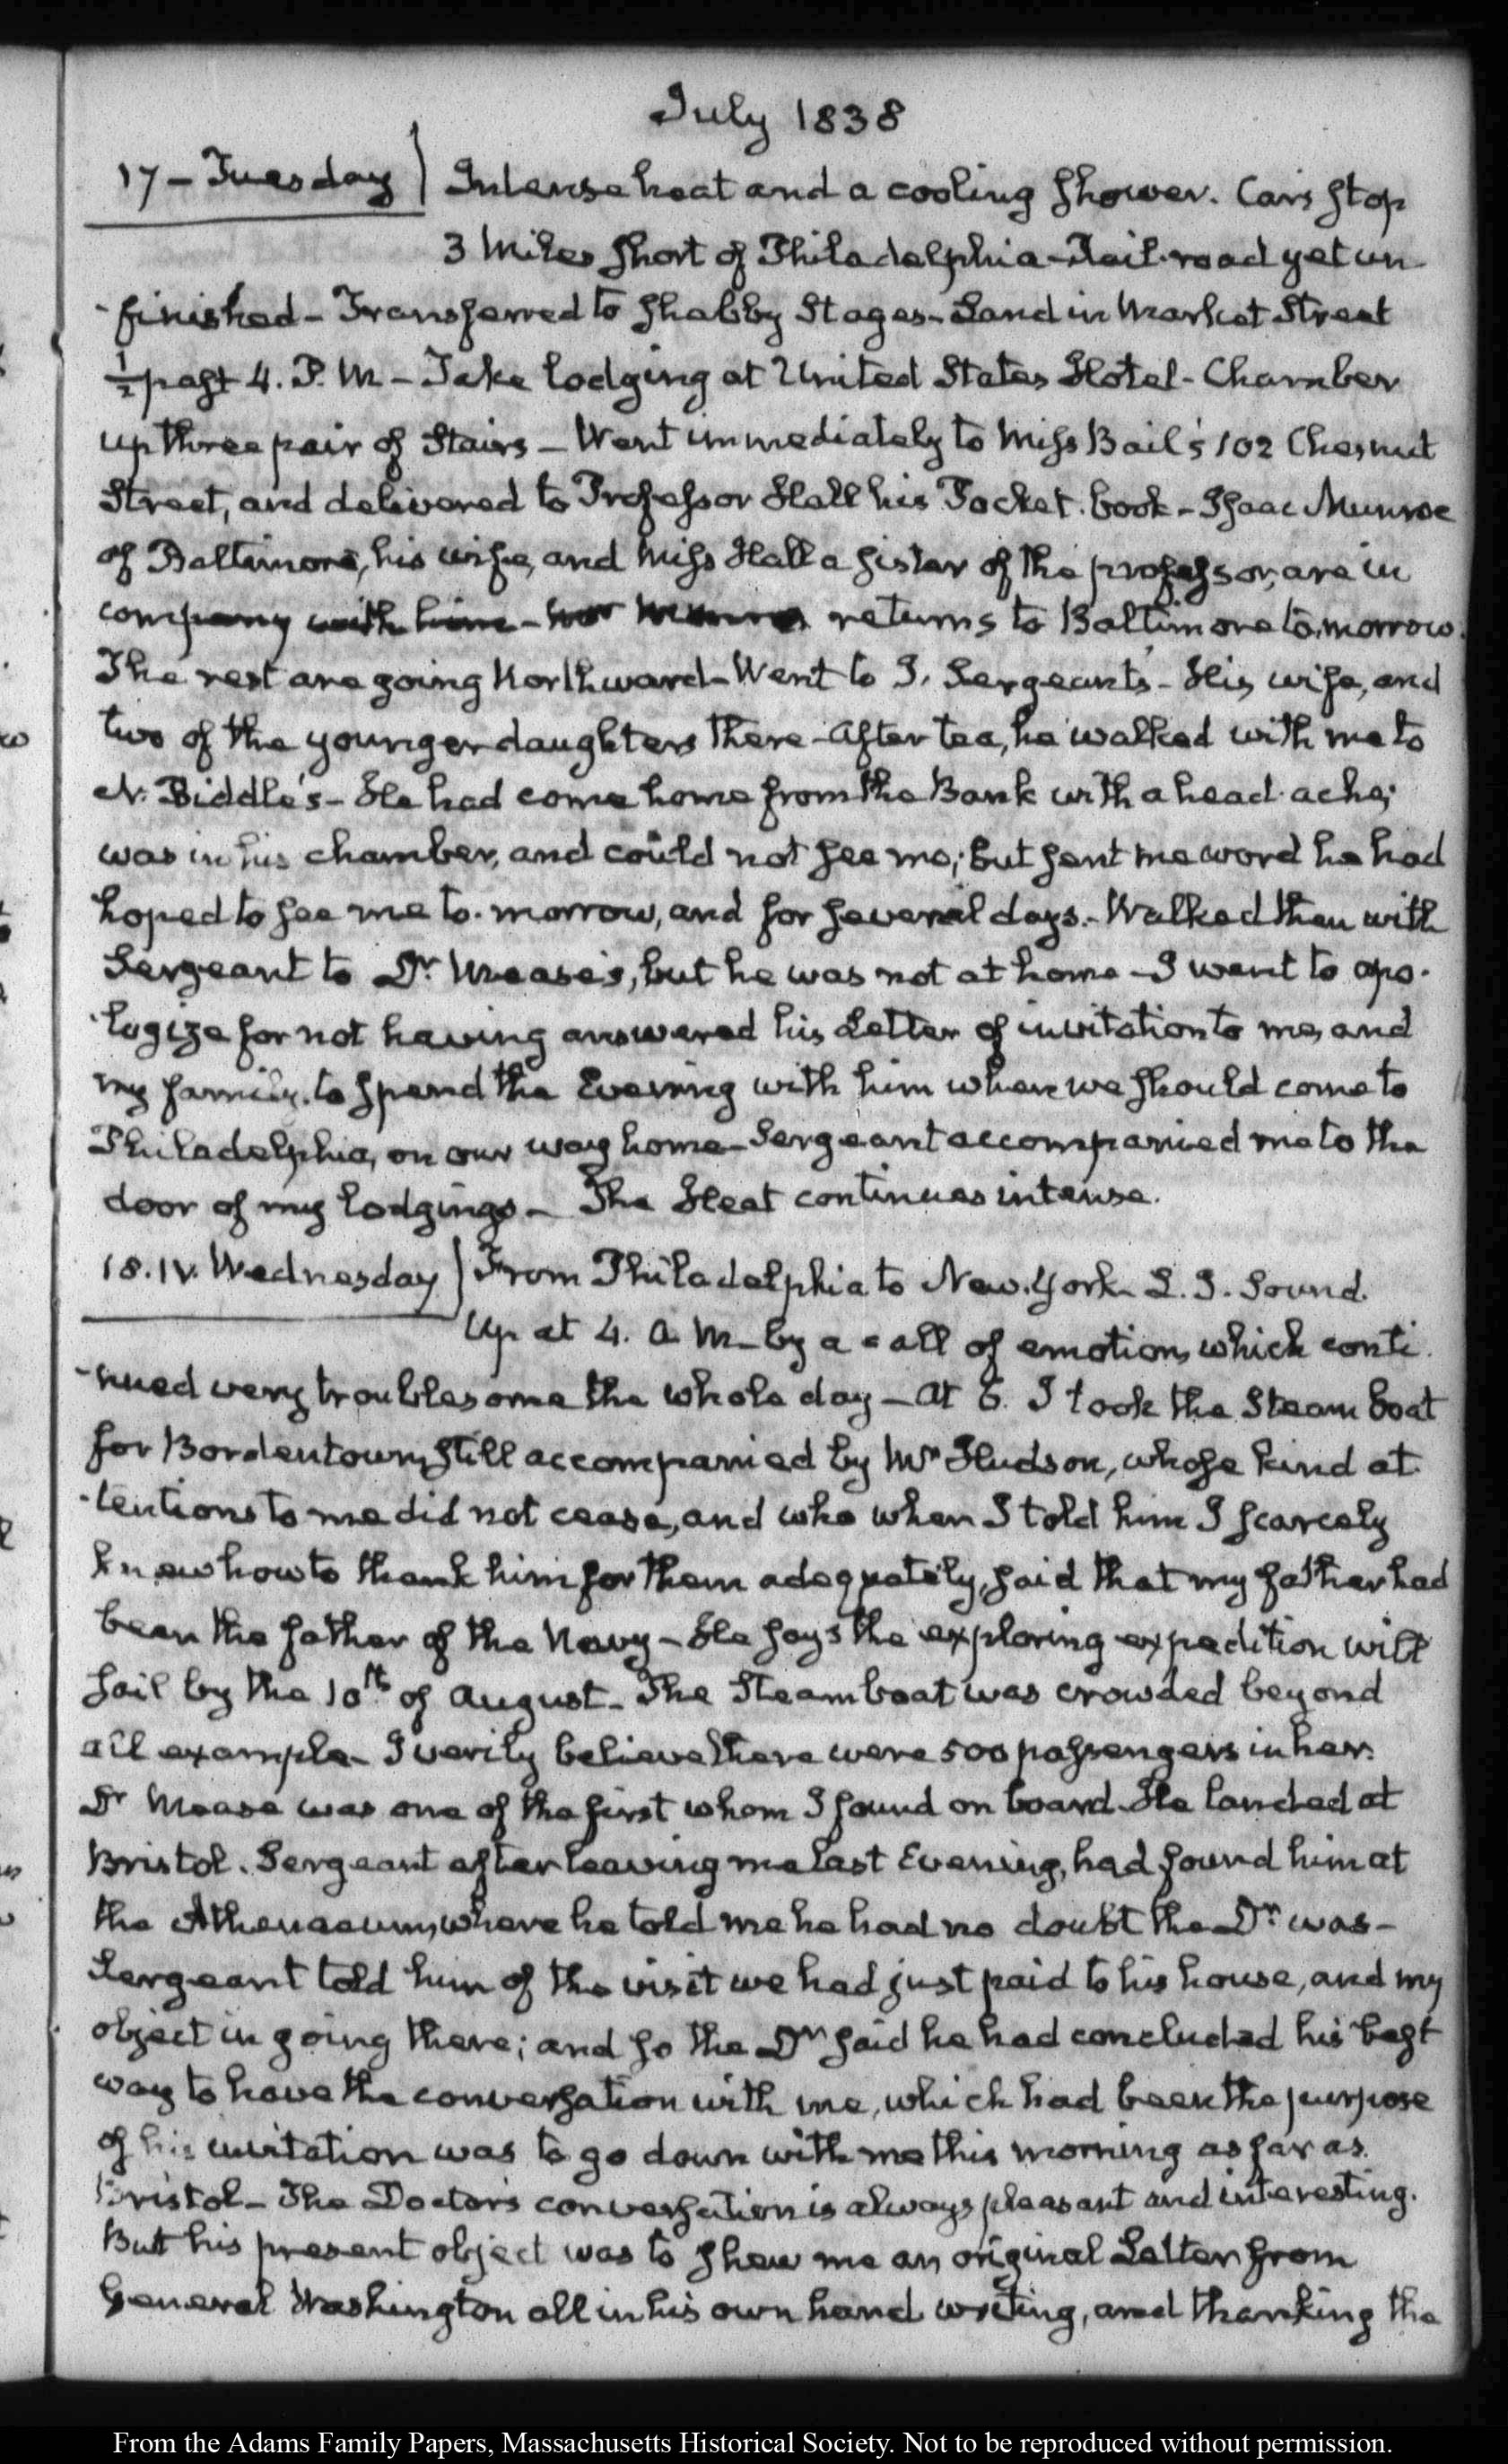 July 1838
17 – Tuesday) Intense heat and a cooling shower. Cars stop
3 Miles short of Philadelphia – Rail-road yet un-
-finished – Transferred to shabby Stages – Land in Market Street
½ past 4. P. M – Take lodging at United States Hotel – Chamber
up three pair of Stairs – Went immediately to Miss Bail's 102 Chesnut
Street, and delivered to Professor Hall his Pocket-book – Isaac Munroe
of Baltimore, his wife, and Miss Hall a sister of the professor, are in
company with him – returns to Baltimore to-morrow.
The rest are going Northward – Went to J. Sergeant's – His wife, and
two of the younger daughters there – After tea, he walked with me to
N. Biddle's – He had come home from the Bank with a head-ache;
was in his chamber, and could not see me; but sent me word he had
hoped to see me to-morrow, and for several days. – Walked then with
Sergeant to Dr. Mease's, but he was not at home – I went to apo-
-logize for not having answered his Letter of invitation to me, and
my family, to spend the Evening with him when we should come to
Philadelphia, on our way home – Sergeant accompanied me to the
door of my lodgings – The Heat continues intense.
18. IV. Wednesday) From Philadelphia to New-York – L. I. Sound.
Up at 4. A. M – by a call of emotion, which conti-
-nued very troublesome the whole day – At 6. I took the Steam boat
for Bordentown, still accompanied by Mr Hudson, whose kind at-
-tentions to me did not cease, and who when I told him I scarcely
knew how to thank him for them adequately, said that my father had
been the father of the Navy – He says the exploring expedition will
sail by the 10th of August – The Steamboat was crowded beyond
all example – I verily believe there were 500 passengers in her.
Dr Mease was one of the first whom I found on board. He landed at
Bristol. Sergeant after leaving me last Evening, had found him at
the Athenaeum, where he told me he had no doubt the Dr. was –
Sergeant told him of the visit we had just paid to his house, and my
object in going there; and so the Dr. said he had concluded his best
way to have the conversation with me, which had been the purpose
of his invitation was to go down with me this morning as far as.
Bristol – The Doctor's conversation is always pleasant and interesting.
But his present object was to shew me an original Letter from
General Washington all in his own hand writing, and thanking the
From the Adams Family Papers, Massachusetts Historical Society. Not to be reproduced without permission.